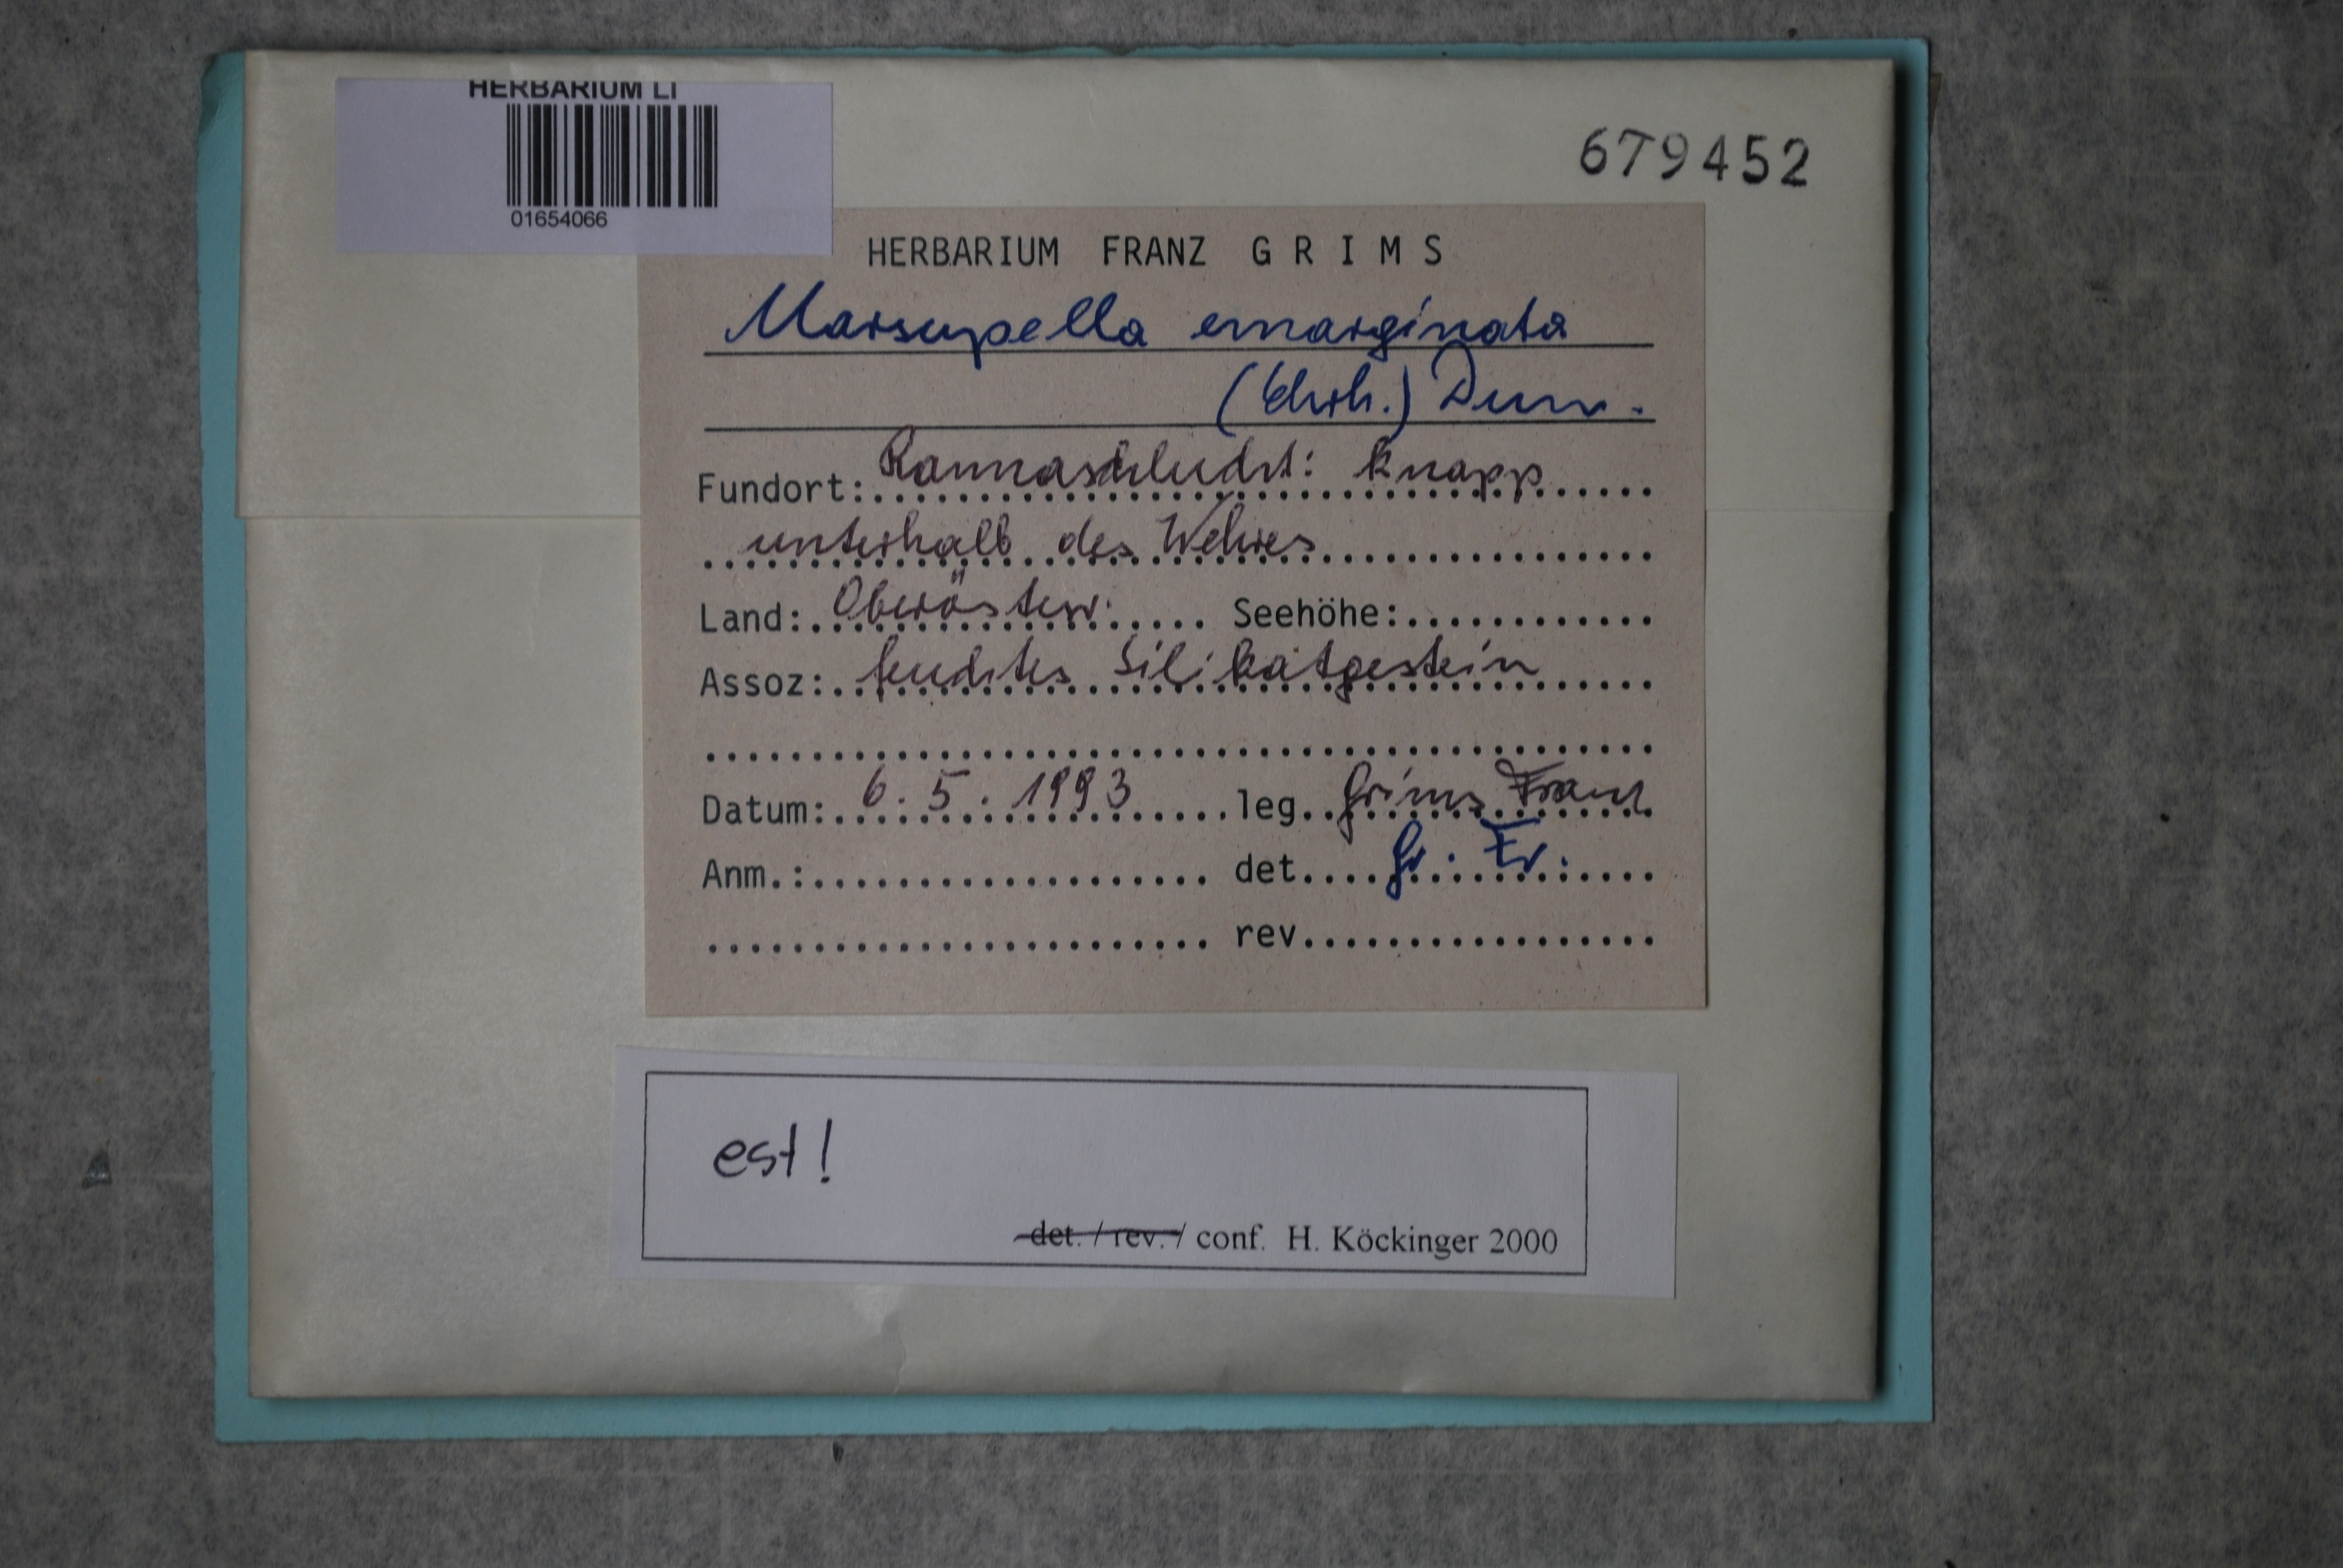 HERBARIUM LI
01654066
679452
HERBARIUM FRANZ GRIMS
Marsupella emarginata
(Ehrh.) Dum.
Fundort: Rannaschlucht: knapp
unterhalb des Wehres
Land: Oberösterr. Seehöhe:
Assoz: feuchtes Silikatgestein
Datum: 6.5.1993 leg. Grims Franz
Anm.: det. Gr. Fr.
rev.
est!
det. / rev. / conf. H. Köckinger 2000